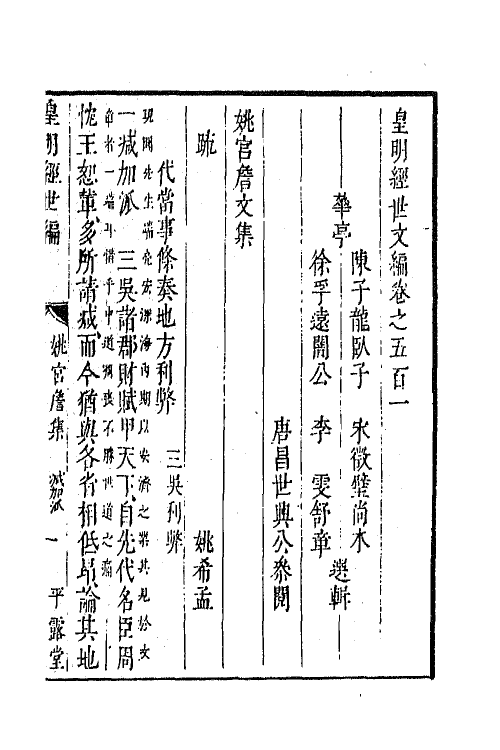 皇明經世文編卷之五百一
華亭
陳子龍臥子　宋徵璧尚木
徐孚遠闇公　李　雯舒章
選輯
唐昌世與公參閱
姚宮詹文集
疏　姚希孟
代當事條奏地方利弊　三吳利弊
現聞先生端亮宏深海內期以安濟之業其見於文
一減加派　三吳諸郡財賦甲天下自先代名臣周
章者一端耳惜乎中道殞喪不勝世道之痛
忱王恕輩多所請減而今猶與各省相低昂論其地
皇明經世編　姚宮詹集　加派　一　平露堂